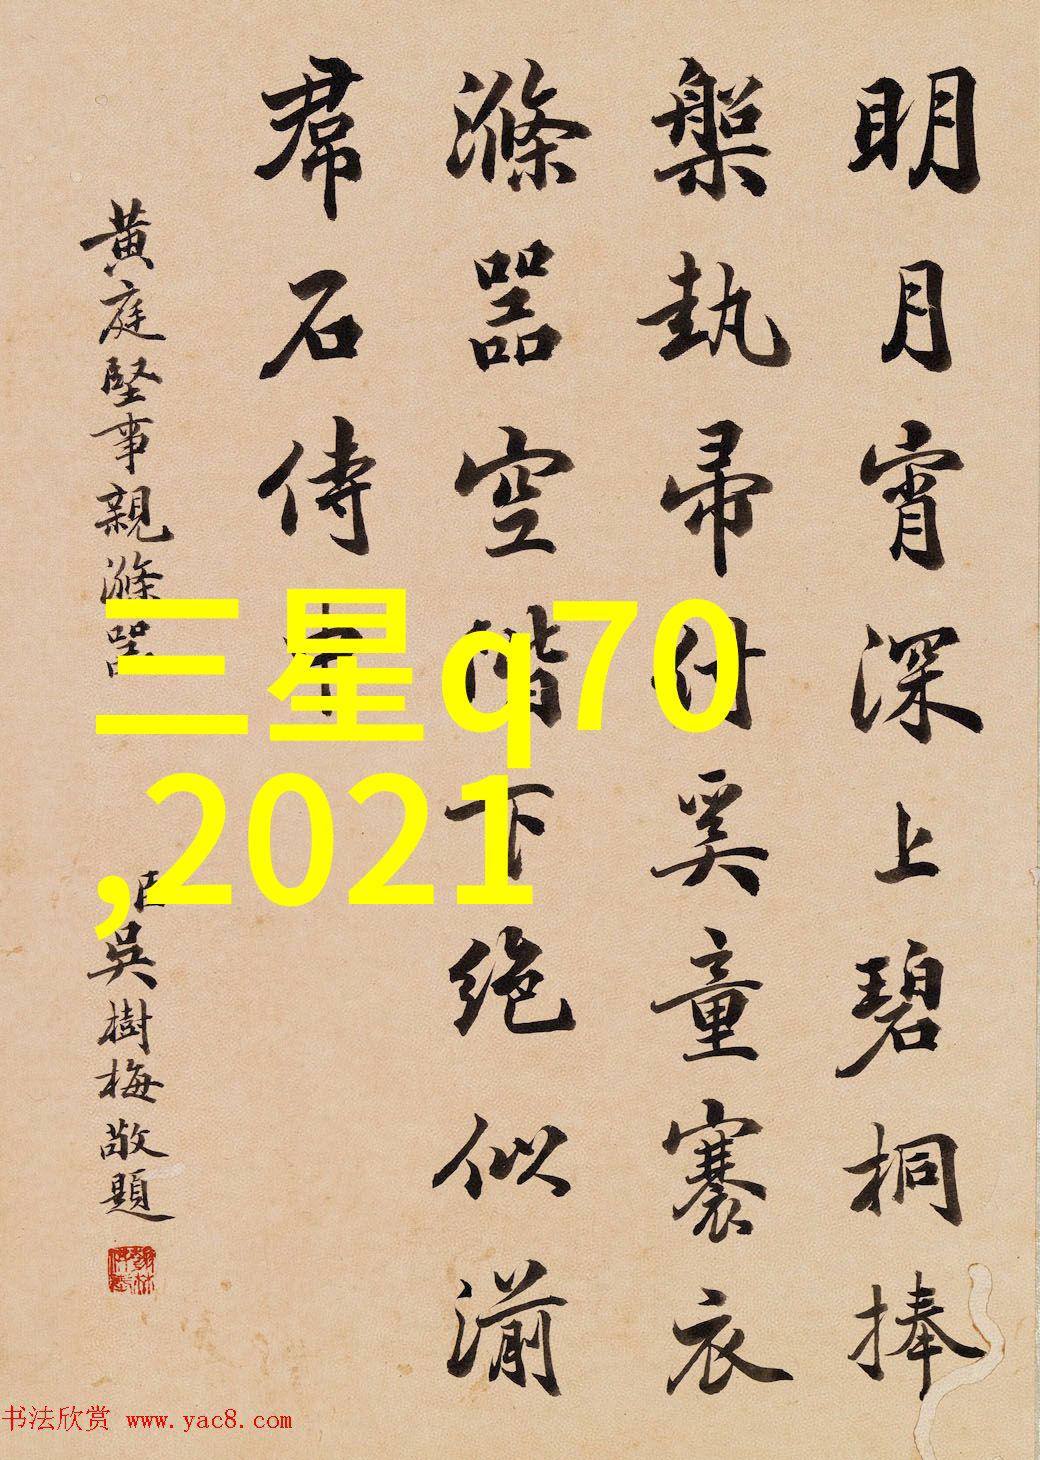 明月宵深上碧桐捧
槃執帚付奚童褰衣
滌器空階下絶似湔
帬石侍中
黄庭堅事親滌器
臣吳樹梅敬題
三星q70
,2021
书法欣赏 www.yac8.com